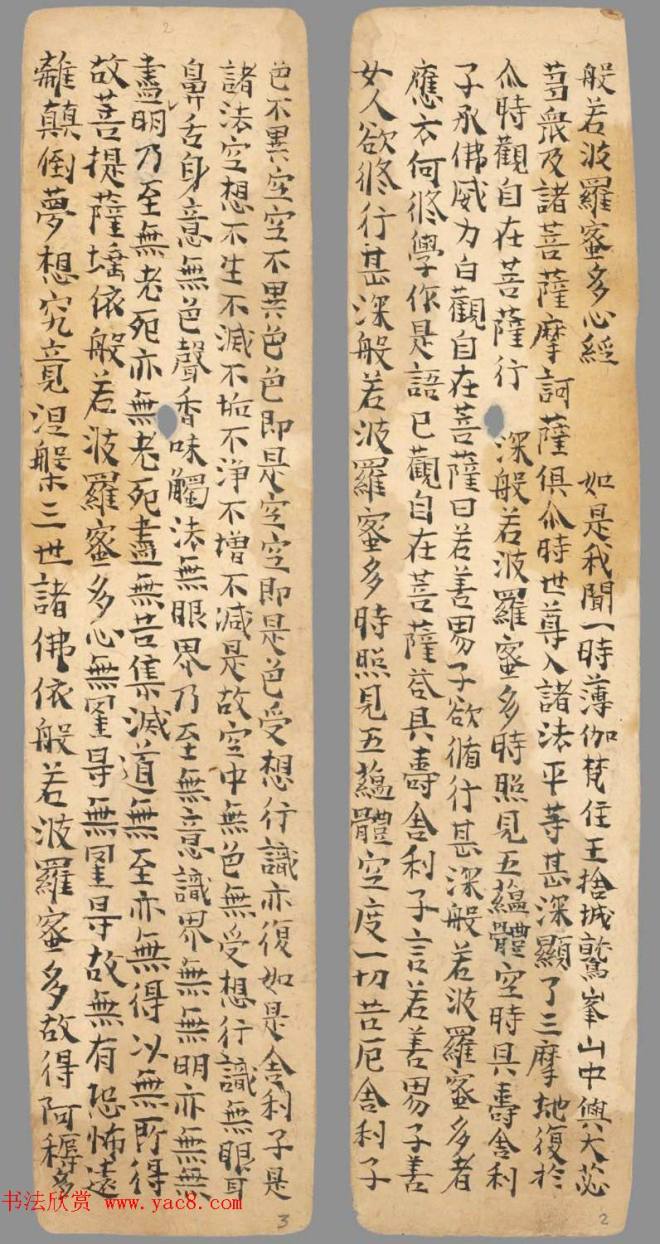 般若波羅蜜多心經　如是我聞一時薄伽梵住王捨城鷲峯山中與大苾
蒭衆及諸菩薩摩訶薩俱尒時世尊入諸法平等甚深顯了三摩地復於
尒時觀自在菩薩行　深般若波羅蜜多時照見五蘊體空時具壽舍利
子承佛威力白觀自在菩薩曰若善男子欲脩行甚深般若波羅蜜多者
應云何修學作是語已觀自在菩薩荅具壽舍利子言若善男子善
女人欲修行甚深般若波羅蜜多時照見五蘊體空度一切苦厄舍利子
2
色不異空空不異色色即是空空即是色受想行識亦復如是舍利子是
諸法空想不生不滅不垢不淨不增不減是故空中無色無受想行識無眼耳
鼻舌身意無色聲香味觸法無眼界乃至無意識界無無明亦無無
盡明乃至無老死亦無老死盡無苦集滅道無至亦無得以無所得
故菩提薩埵依般若波羅蜜多心無罣㝵無罣㝵故無有恐怖遠
離顛倒夢想究竟涅槃三世諸佛依般若波羅蜜多故得阿耨多
2
3
书法欣赏 www.yac8.com